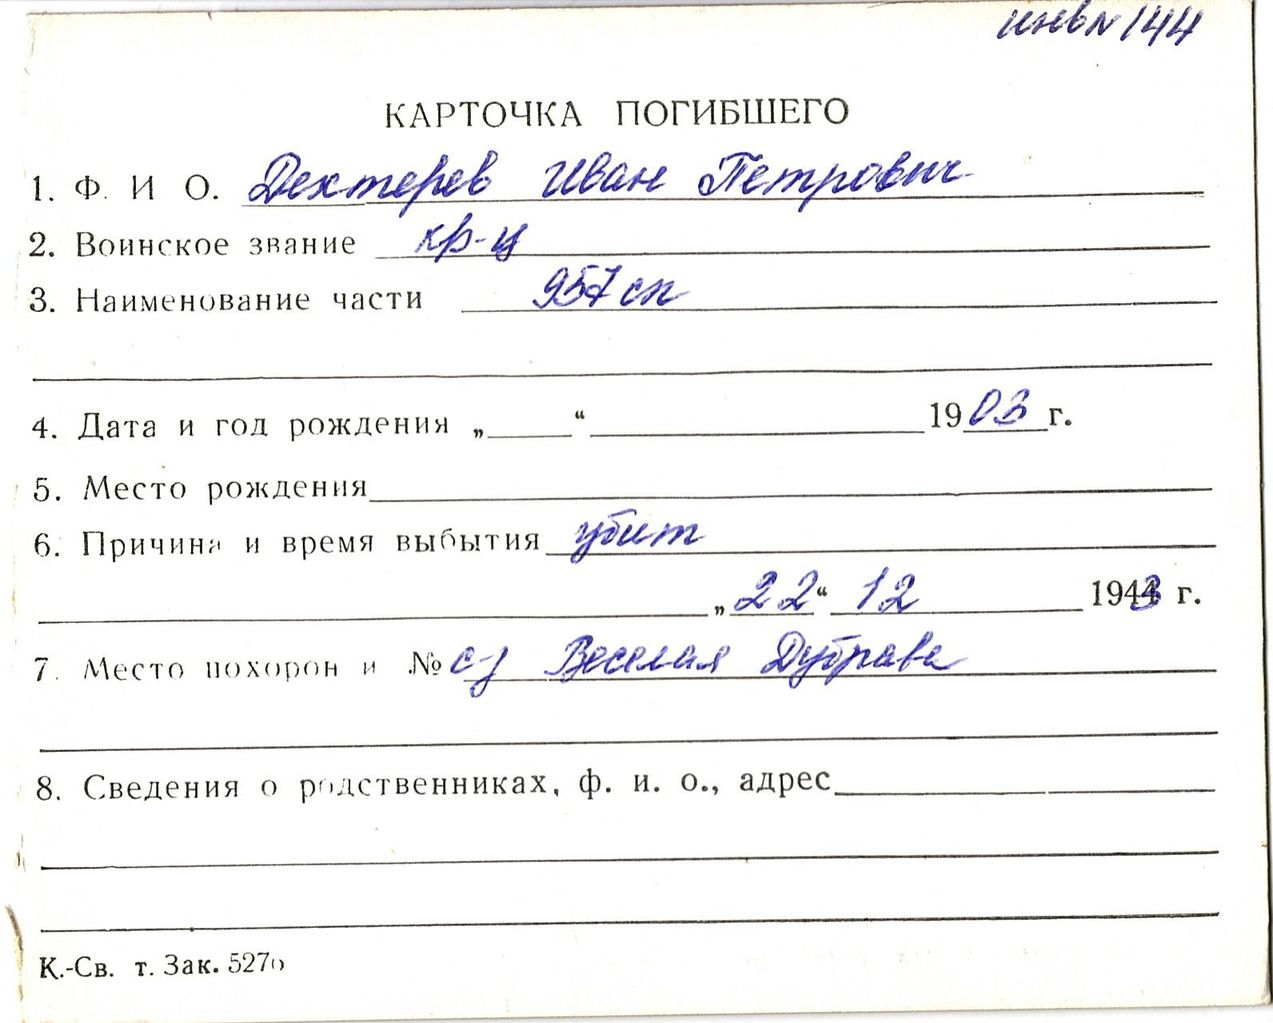 инв№144
КАРТОЧКА ПОГИБШЕГО
1. Ф. И О. Дехтерев Иван Петрович
2. Воинское звание кр-ц
3. Наименование части 957 сп
4. Дата и год рождения „ “ 1903 г.
5. Место рождения
6. Причина и время выбытия убит
„22“ 12 1943 г.
7. Место похорон и № с-з Веселая Дубрава
8. Сведения о родственниках, ф. и. о., адрес
К.-Св. т. Зак. 5270